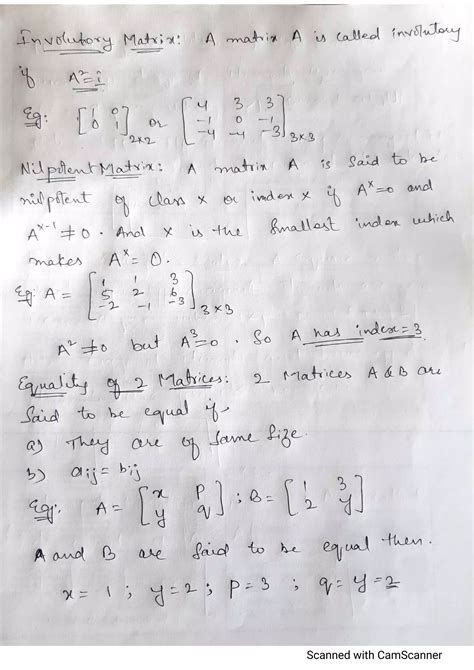 Involutory Matrix: A matrix A is called involutory
if A²=i
Eg: [1 0 or [4 3 3
0 1]2x2 -1 0 -1
-4 -4 -3]3x3
Nilpotent Matrix: A matrix A is said to be
nilpotent of class x or index x if Aˣ=0 and
Aˣ⁻¹≠0. And x is the smallest index which
makes Aˣ=0.
Eg: A = [1 1 3
5 2 6
-2 -1 -3]3x3
A²≠0 but A³=0. So A has index=3.
Equality of 2 Matrices: 2 Matrices A & B are
said to be equal if
a) They are of same size.
b) aij = bij
Eg: A = [x P ; B = [1 3
y q] 2 y]
A and B are said to be equal then.
x = 1 ; y = 2 ; P = 3 ; q = y = 2
Scanned with CamScanner